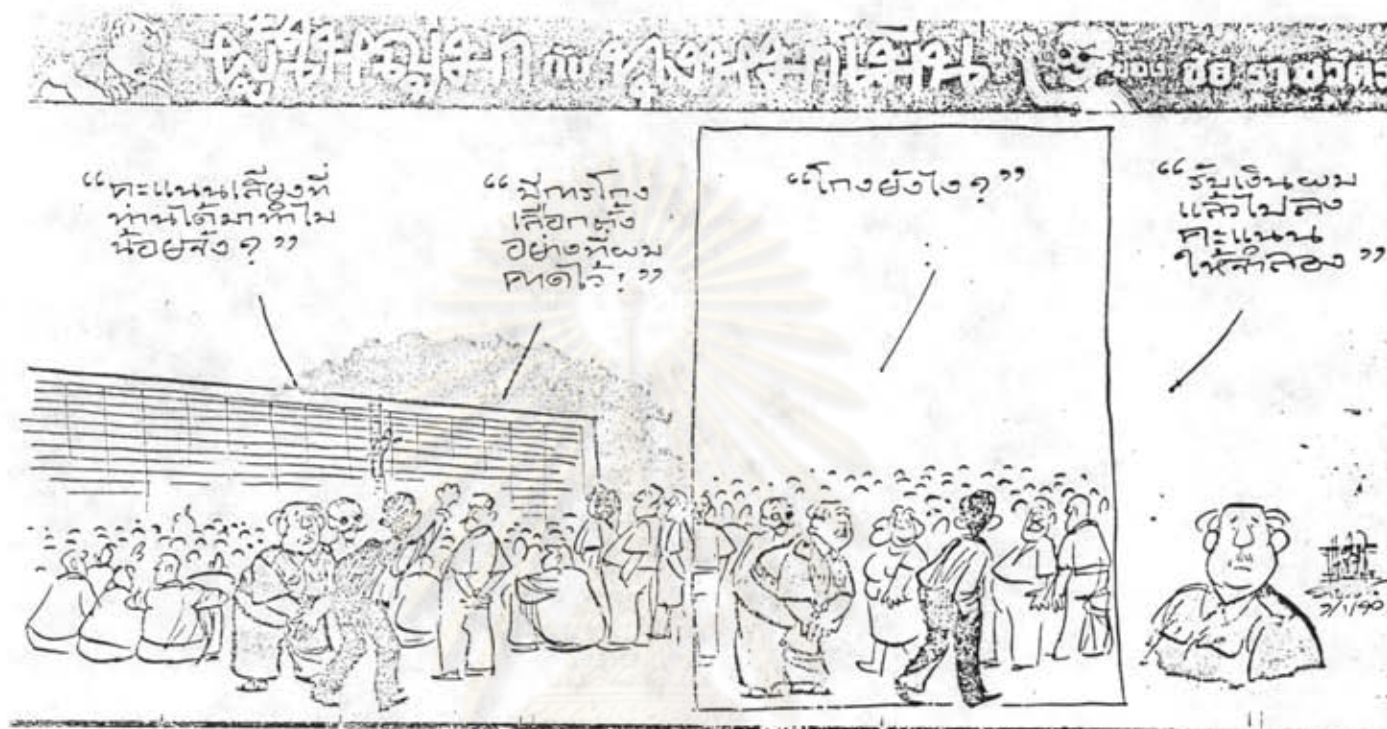 ผู้ใหญ่มา กับ ทุ่งหมาเมิน ของ ชัย ราชวัตร
“คะแนนเสียงที่
ท่านได้มาทำไม
น้อยจัง ? ”
“ มีการโกง
เลือกตั้ง
อย่างที่ผม
คาดไว้ ! ”
“โกงยังไง ? ”
“ รับเงินผม
แล้วไปลง
คะแนน
ให้จำลอง ”